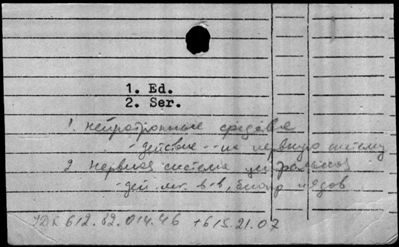 1. Ed.
2. Ser.
1. Нейротропные средства
- действие - на нервную систему
2 Нервная система центральная
- дей. лек. в-в,
УДК 612.82.014.46 +615.21.07